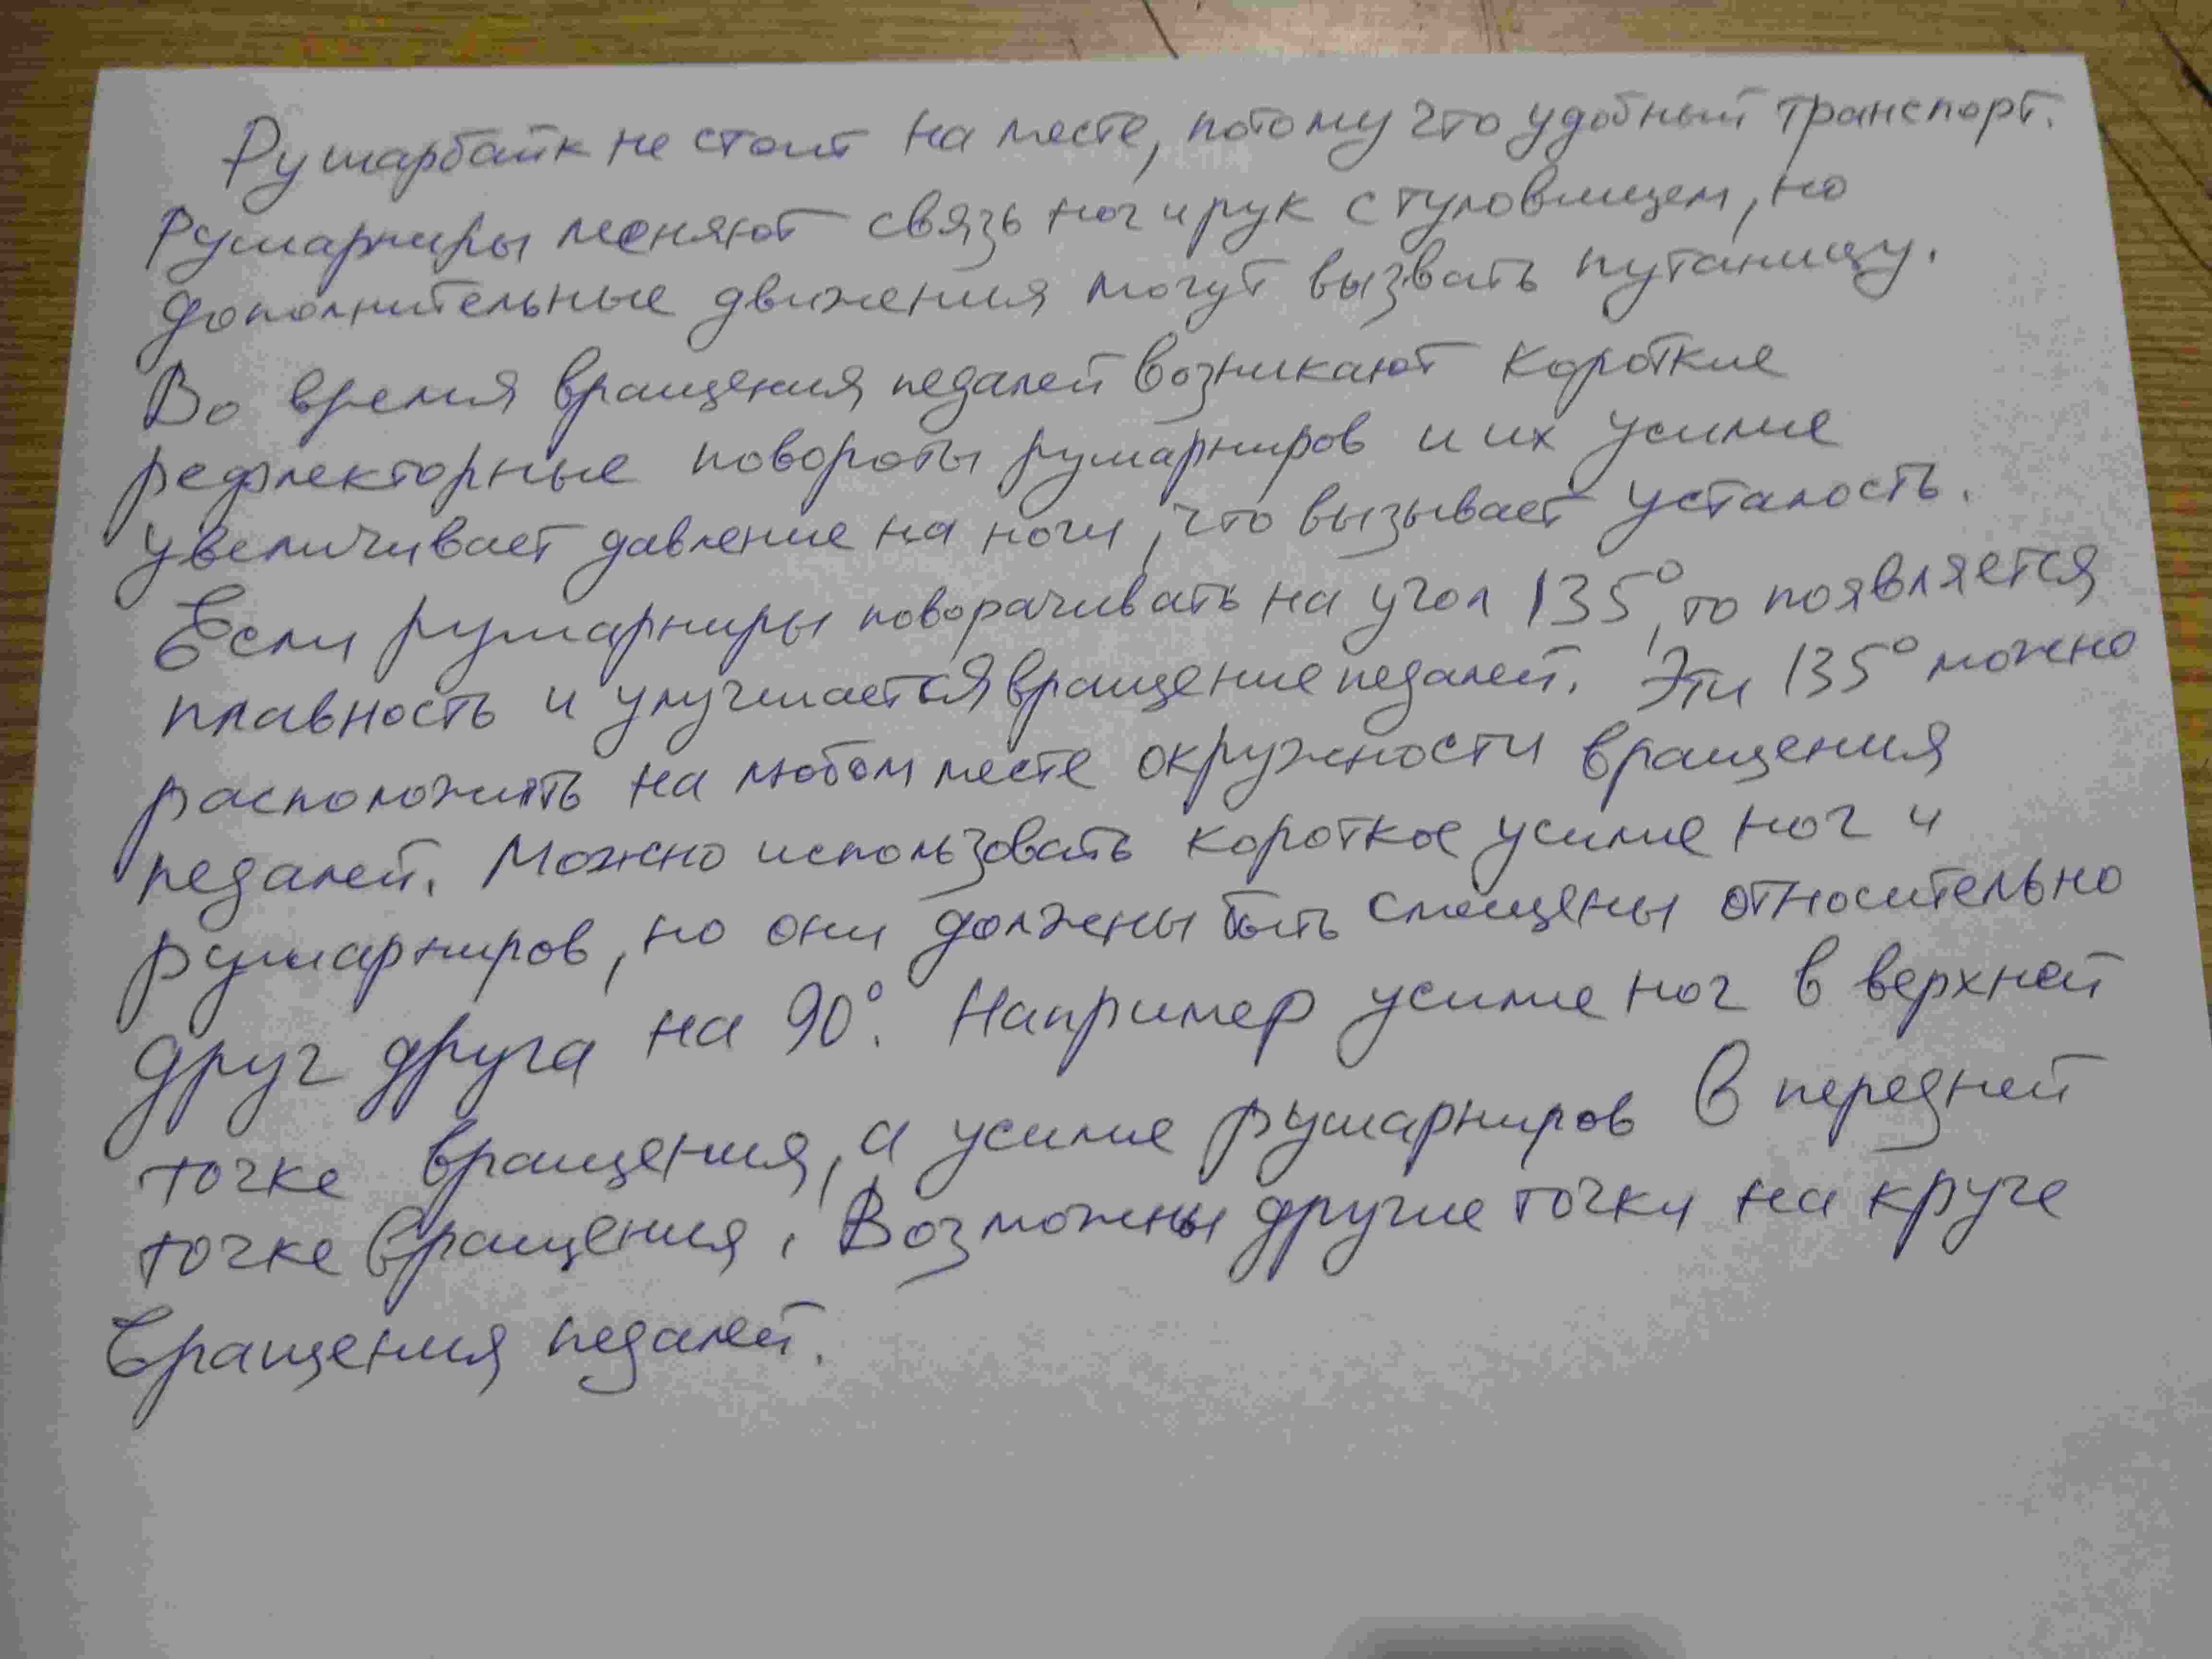 Рушарбайк не стоит на месте, потому что удобный транспорт.
Рушарниры меняют связь ног и рук с туловищем, но
дополнительные движения могут вызвать путаницу.
Во время вращения педалей возникают короткие
рефлекторные повороты рушарниров и их усилие
увеличивает давление на ноги, что вызывает усталость.
Если рушарниры поворачивать на угол 135°, то появляется
плавность и улучшается вращение педалей. Эти 135° можно
расположить на любом месте окружности вращения
педалей. Можно использовать короткое усилие ног и
рушарниров, но они должны быть смещены относительно
друг друга на 90°. Например усилие ног в верхней
точке вращения, а усилие рушарниров в передней
точке вращения. Возможны другие точки на круге
вращения педалей.